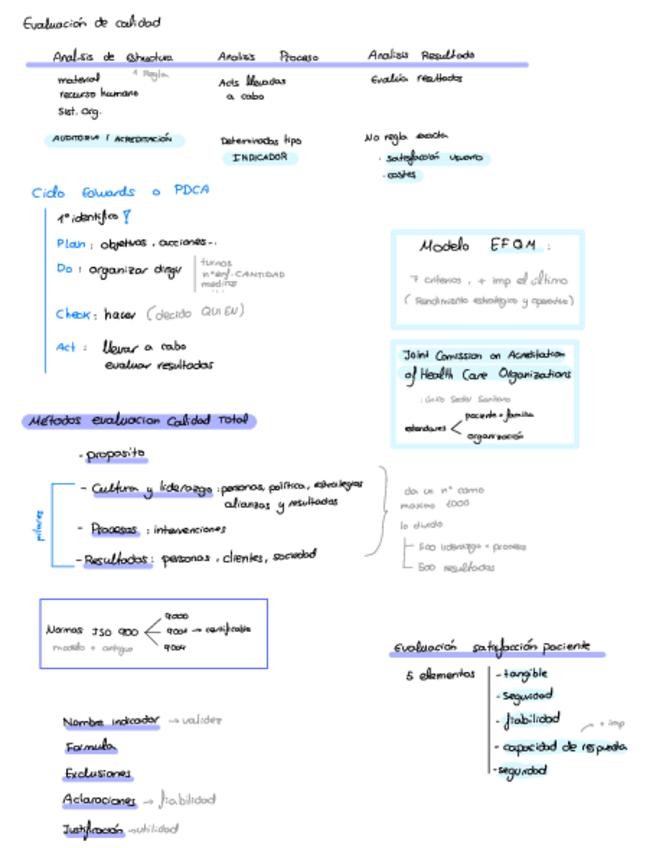 Evaluación de calidad
Analisis de Estructura
Analisis Proceso
Analisis Resultado
material
+ Regla
recurso humano
Sist. Org.
Acts llevadas
a cabo
Evalúa resultados
AUDITORIA / ACREDITACIÓN
Determinados tipo
INDICADOR
No regla exacta
· satisfacción usuario
· costes
Ciclo Edwards o PDCA
1º identifico ?
Plan : objetivos , acciones...
Do : organizar dirigir
turnos
nº enf. CANTIDAD
Check : hacer (decido QUIEN)
Act : llevar a cabo
evaluar resultados
Modelo EFQM :
7 criterios , + imp el último
( Rendimiento estratégico y operativo)
Joint Comission on Acreditation
of Health Care Organizations
: único Sector Sanitario
estandares
paciente + familia
organización
Métodos evaluacion Calidad Total
- proposito
pilares
- Cultura y liderazgo : personas, política, estrategias
alianzas y resultados
- Procesos : intervenciones
- Resultados : personas , clientes, sociedad
da un nº como
maximo 1000
lo divido
500 liderazgo + proceso
500 resultados
Normas ISO 900
modelo + antiguo
9000
9001 → certificable
9004
Evaluación satisfacción paciente
5 elementos
- tangible
- seguridad
- fiabilidad
+ imp
- capacidad de respuesta
- seguridad
Nombre indicador → validez
Formula
Exclusiones
Aclaraciones → fiabilidad
Justificación → utilidad